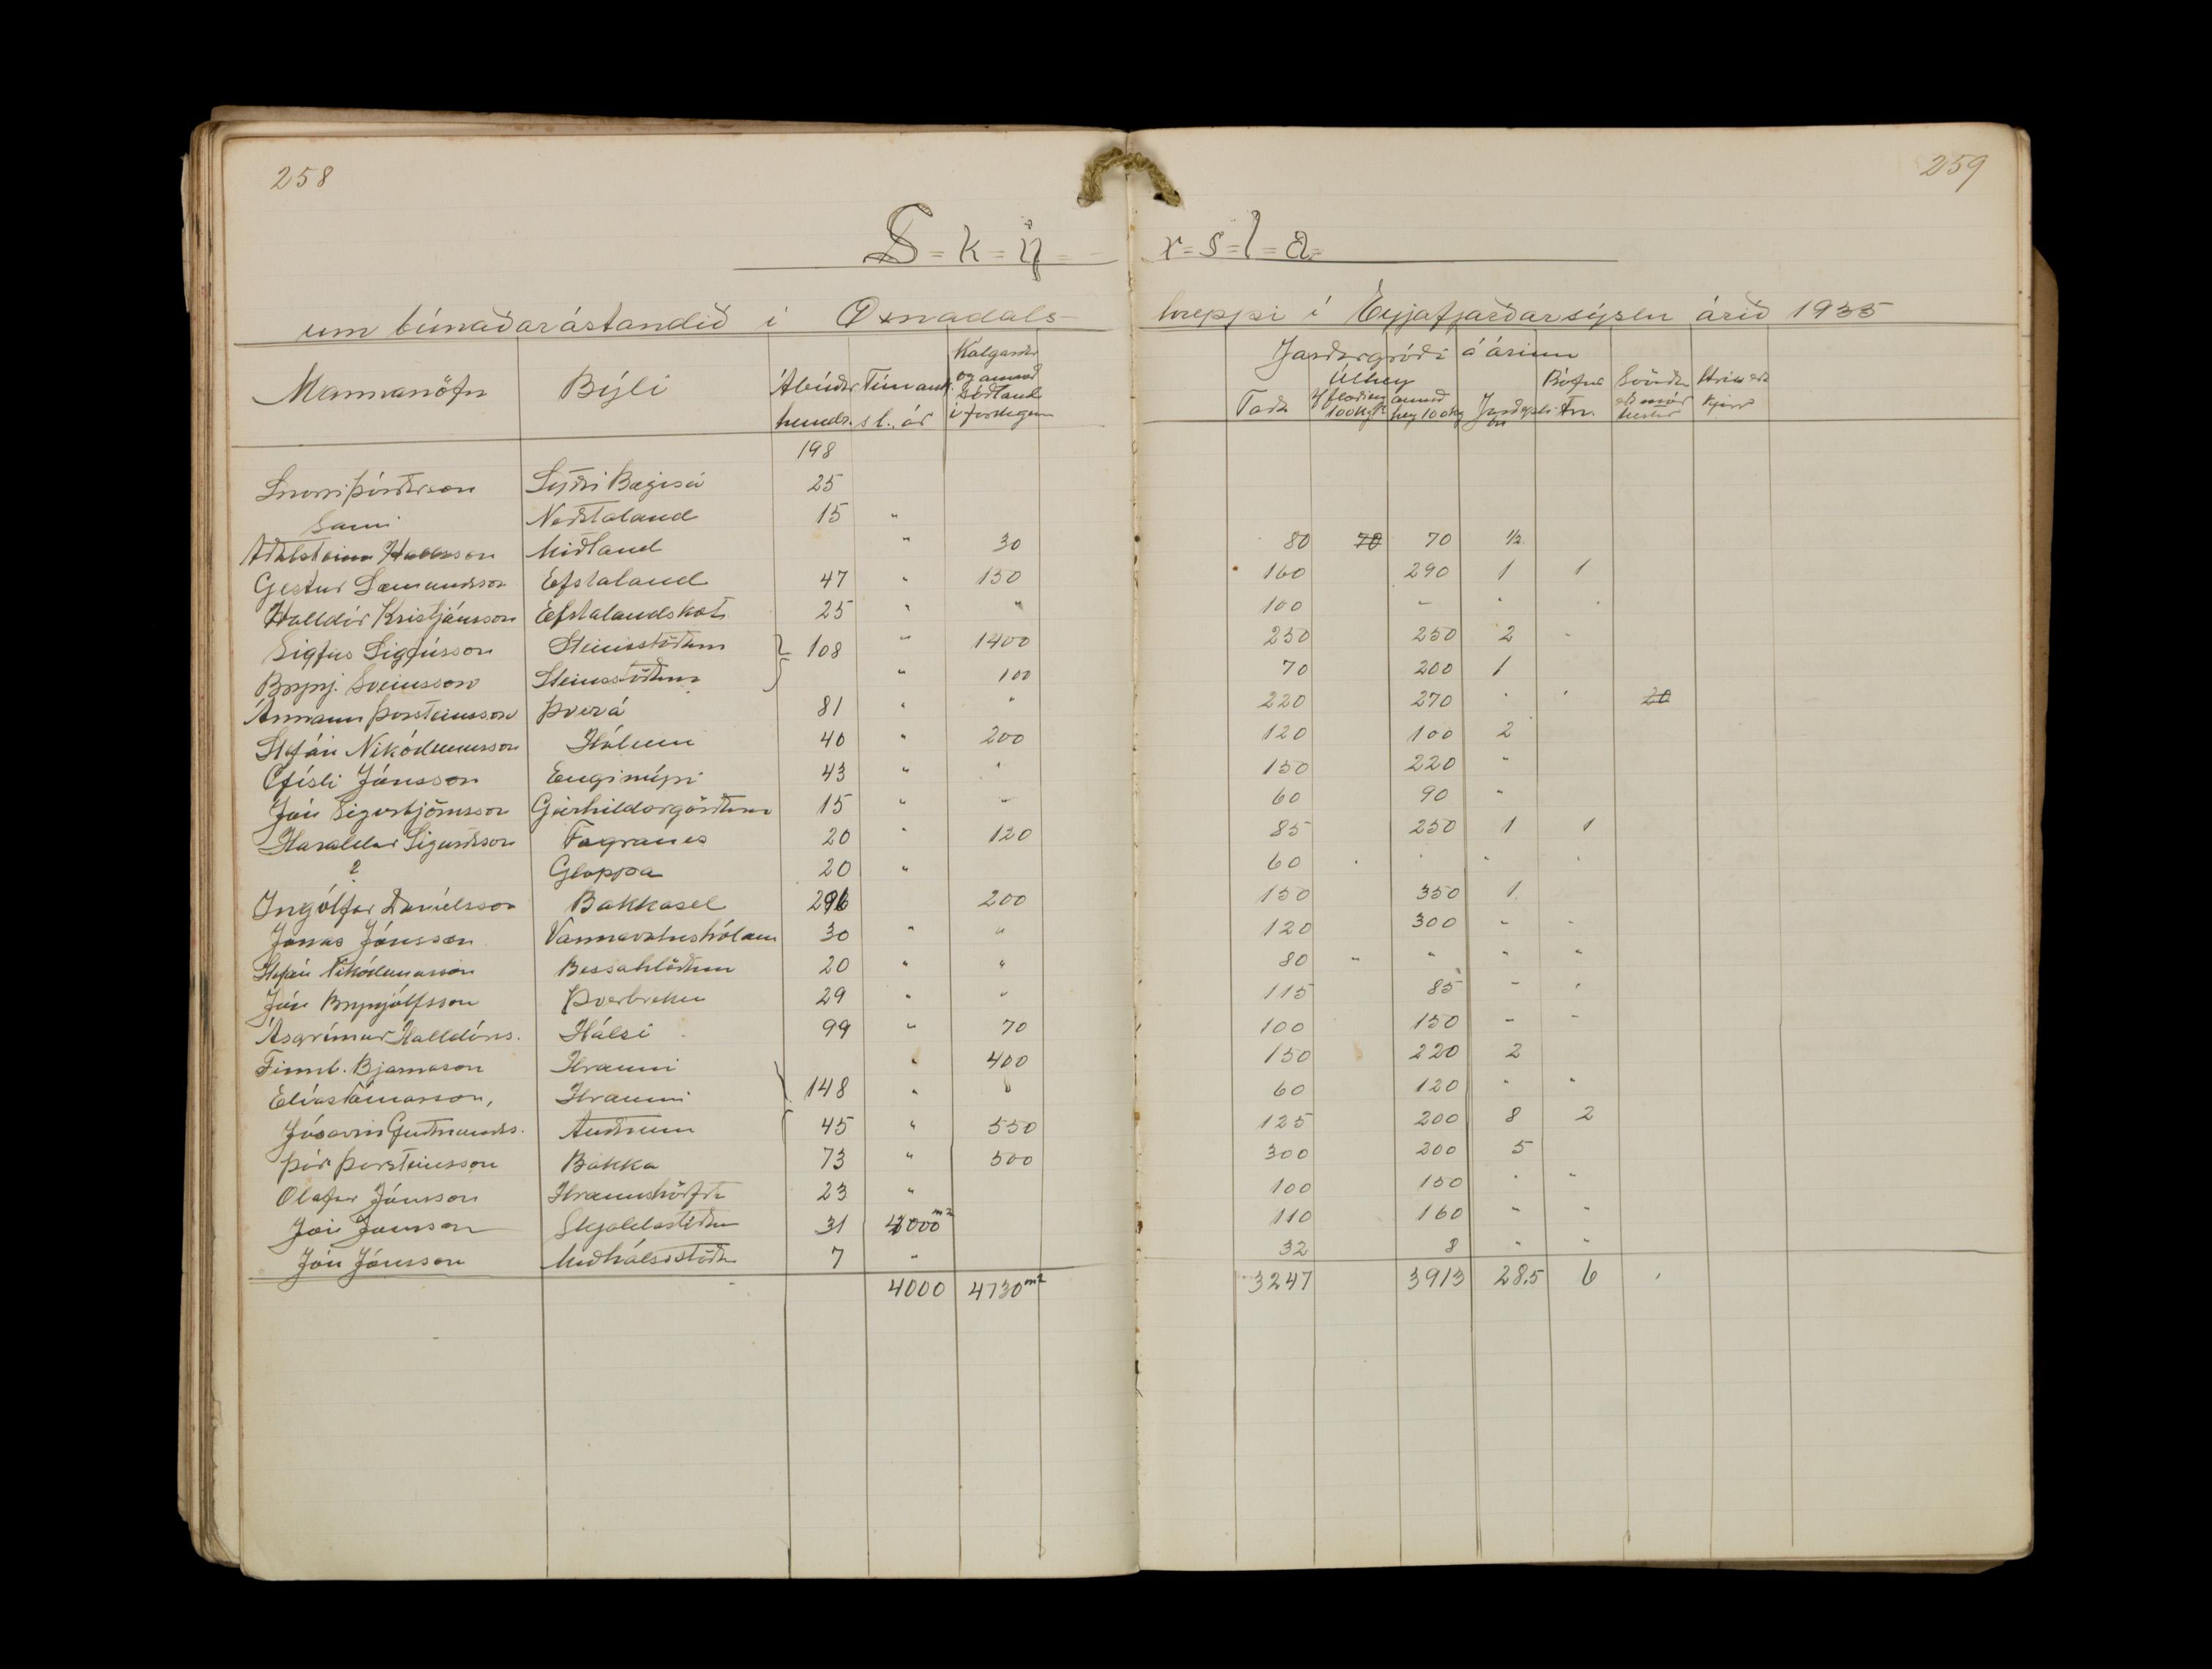 258
259
S=k=ý= r=s=l=a=
um búnaðarástandið í Öxnadals- hreppi í Eyjafjarðarsýslu árið 1935
Jarðargróði á árinu
Mannanöfn Býli Ábúðar hundr. Túnauk. sl. ár Kálgarðar og annað sáðland í ferhyrn Taða Úthey af flæðieng 100 kg annað hey 100 kg Jarðepli tn Rófur Tn. Svörður eða mór hestar Hrís eða kjarr
198
Snorri Þórðarson Syðri Bægisá 25
Sami Neðstaland 15 "
Aðalsteinn Miðland " 30 80 70 70 ½
Gestur Sæmundsson Efstaland 47 " 150 160 290 1 1
Halldór Kristjánsson Efstalandskoti 25 " " 100 - "
Sigfús Sigfússon Steinsstöðum 108 " 1400 250 250 2 -
Brynj. Sveinsson Steinsstöðum " 100 70 200 1
Ármann Þorsteinsson Þverá 81 " " 220 270 " " 20
Stefán Nikódemusson Hólum 40 " 200 120 100 2
Gísli Jónsson Engimýri 43 " " 150 220 "
Jón Sigurbjörnsson Geirhildargörðum 15 " " 60 90 "
Haraldur Sigurðsson Fagranes 20 " 120 85 250 1 1
? Gloppa 20 " 60 " " " "
Ingólfur Daníelsson Bakkasel 296 200 150 350 1
Jónas Jónsson Vaxnavatnshólum 30 " " 120 300 " "
Stefán Nikódemusson Bessahlöðum 20 " " 80 " " " "
Jón Brynjólfsson Þverbrekku 29 " " 115 85 " "
Ásgrímur Halldórs. Hálsi 99 " 70 100 150 " "
Finnl. Bjarnason Hrauni " 400 150 220 2
Elías Tómasson, Hrauni 148 " " 60 120 " "
Jósavin Guðmunds. Auðnum 45 " 550 125 200 8 2
Þór Þorsteinsson Bakka 73 " 500 300 200 5
Ólafur Jónsson Hraunshöfða 23 " 100 150 " "
Jón Jónsson Skjaldastöðum 31 4000 m² 110 160 " "
Jón Jónsson Miðhálsstöðum 7 " 32 8 " "
4000 4730 m² 3247 3913 28.5 6 "